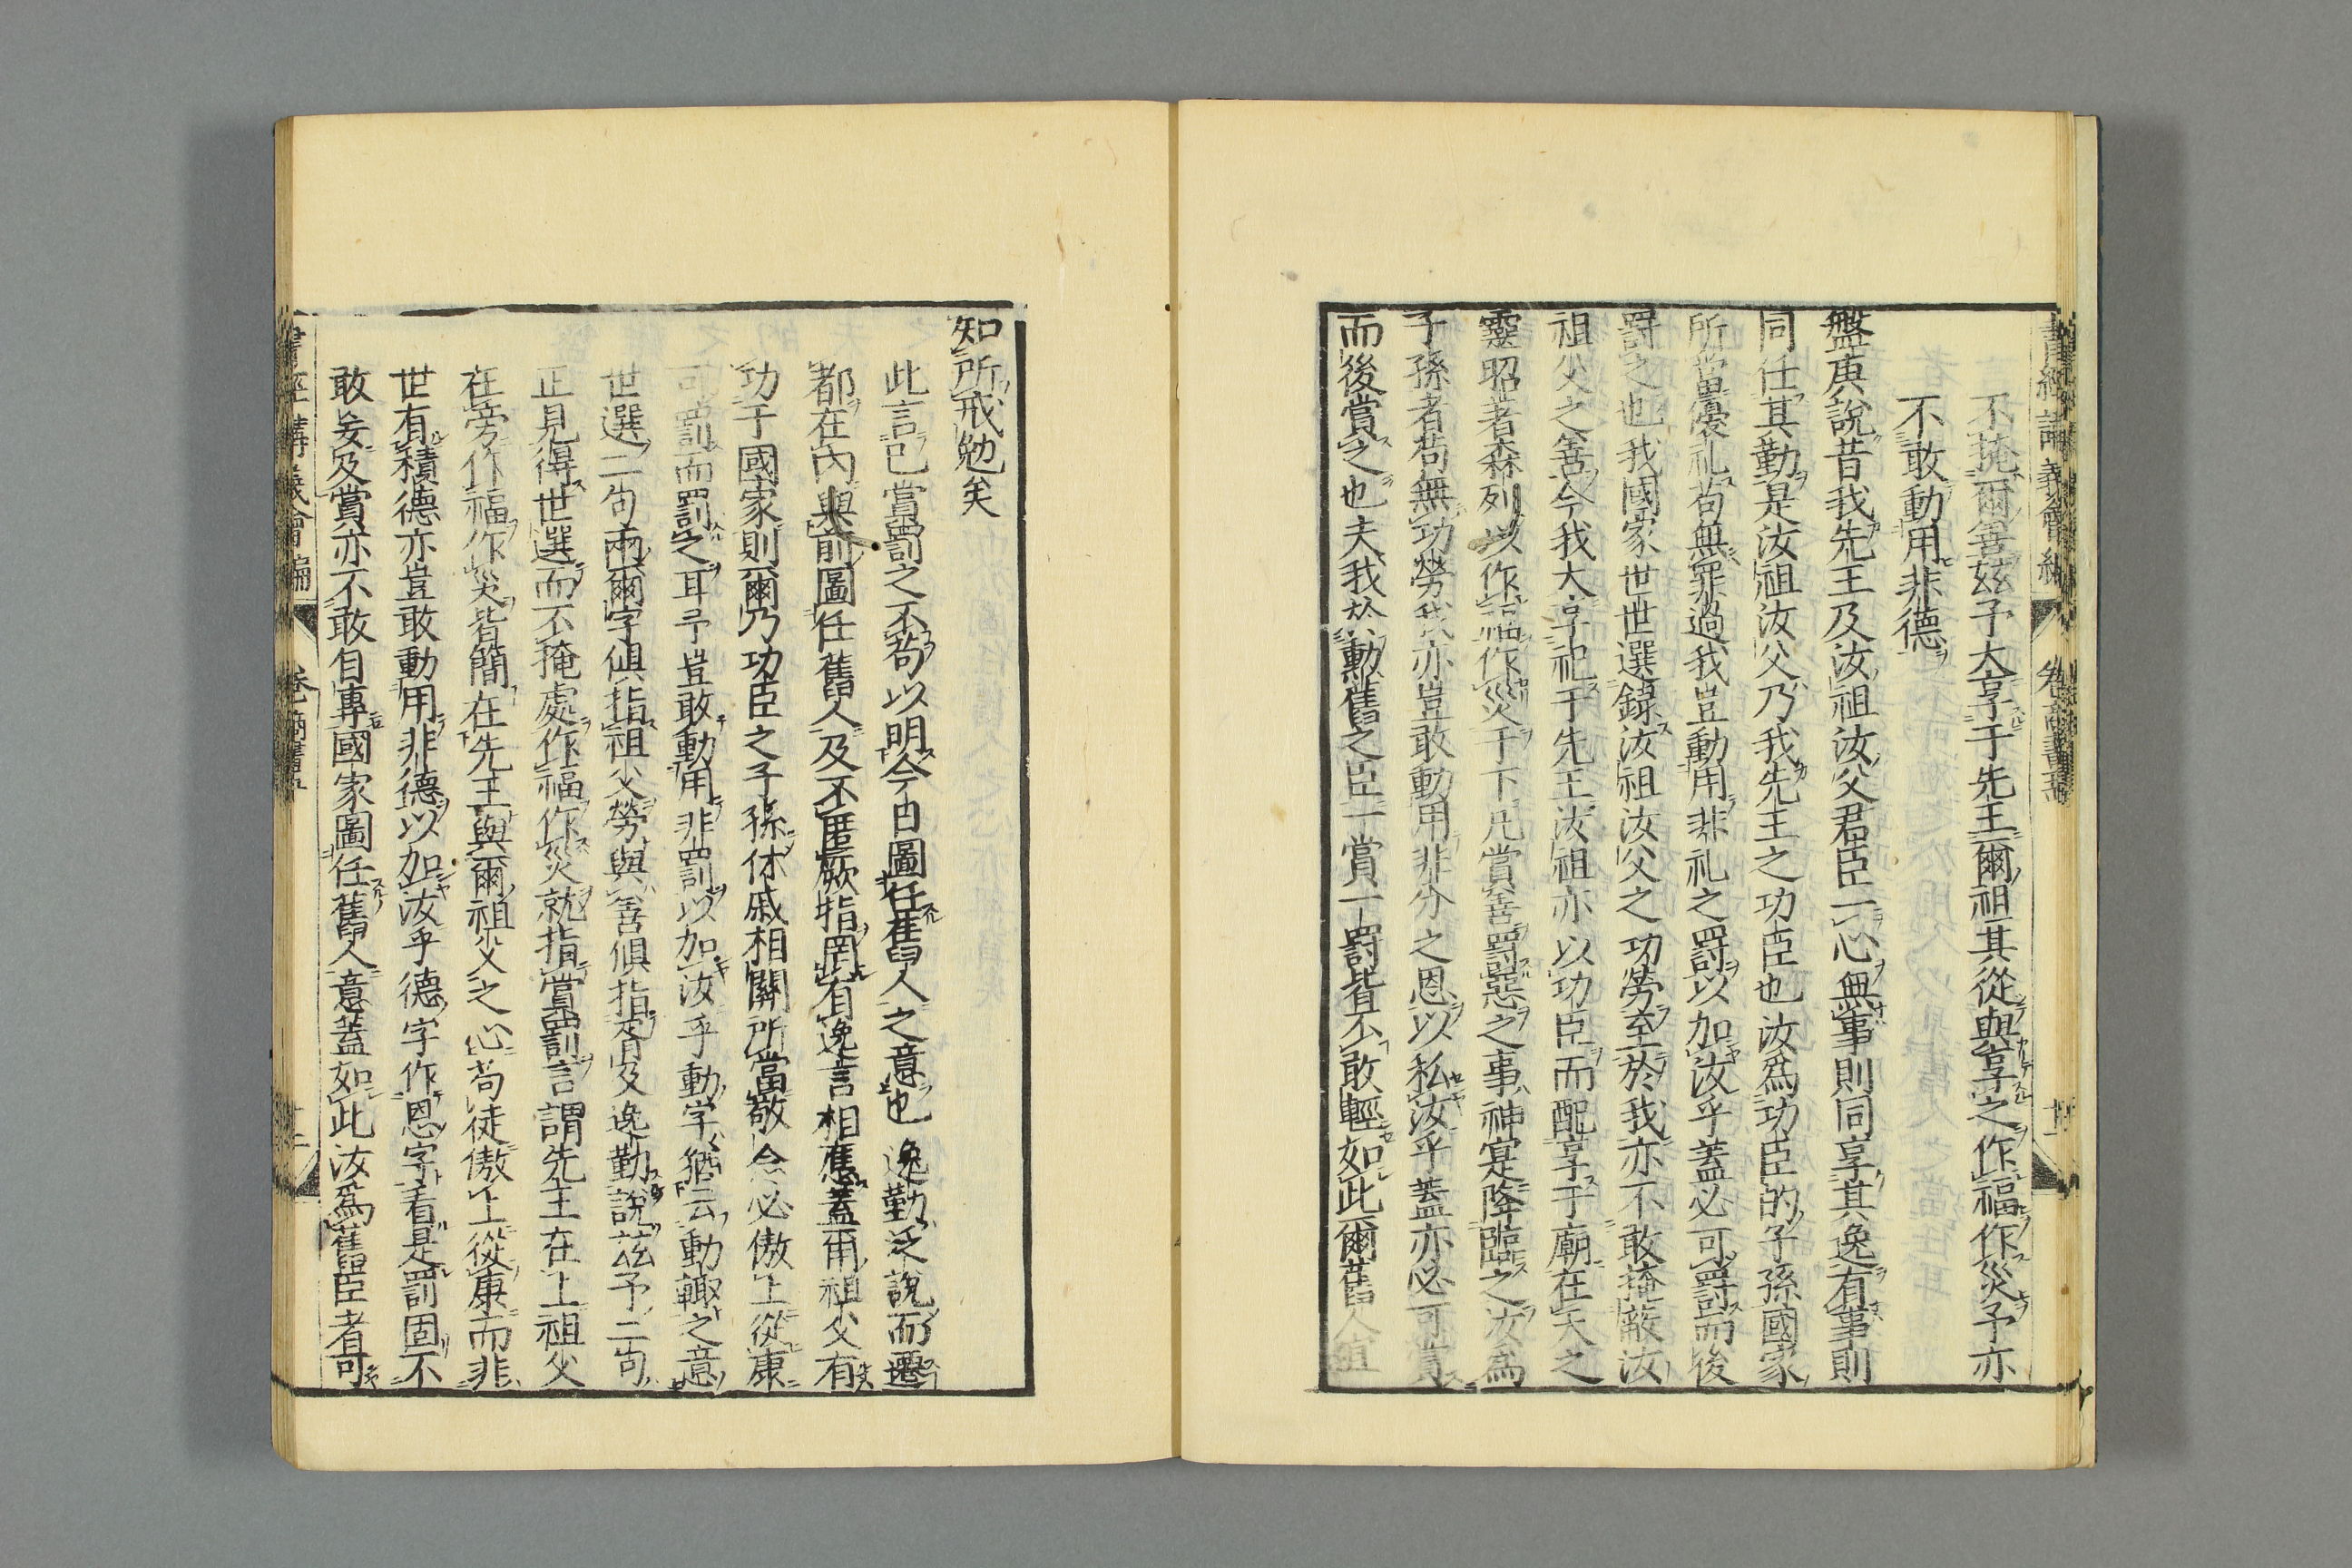 書經講義會編 卷 商書
不掩爾善茲予大享于先王爾祖其從與享之作福作災予亦
不敢動用非德
盤庚說昔我先王及汝祖汝父君臣一心無事則同享其逸有事則
同任其勤是汝祖汝父乃我先王之功臣也汝爲功臣的子孫國家
所當優礼苟無罪過我豈動用非礼之罸以加汝乎蓋必可罸而後
罸之也我國家世世選錄汝祖汝父之功勞至於我亦不敢掩蔽汝
祖父之善今我大享祀于先王汝祖亦以功臣而配享于廟在天之
靈昭著森列以作福作災于下凡賞善罸惡之事神寔降臨之汝爲
子孫者苟無功勞我亦豈敢動用非分之恩以私汝乎蓋亦必可賞
而後賞之也夫我於勳舊之臣一賞一罸皆不敢輕如此爾舊人宜
知所戒勉矣
此言已當罰之不苟以明今日圖任舊人之意也逸勤泛說而遷
都在內與前圖任舊人及不匿厥指罔有逸言相應蓋爾祖父有
功于國家則爾乃功臣之子孫休戚相關所當敬念必傲上從康
可罰而罰之耳予豈敢動用非罰以加汝乎動字猶云動輙之意
世選二句兩爾字俱指祖父勞與善俱指胥及逸勤說茲予二句
正見得世選而不掩處作福作災就指賞罰言謂先王在上祖父
在旁作福作災皆簡在先王與爾祖父之心苟徒傲上從康而非
世有積德亦豈敢動用非德以加汝乎德字作恩字看是罰固不
敢妄及賞亦不敢自專國家圖任舊人意蓋如此汝爲舊臣者可
書經講義會編 卷 商書